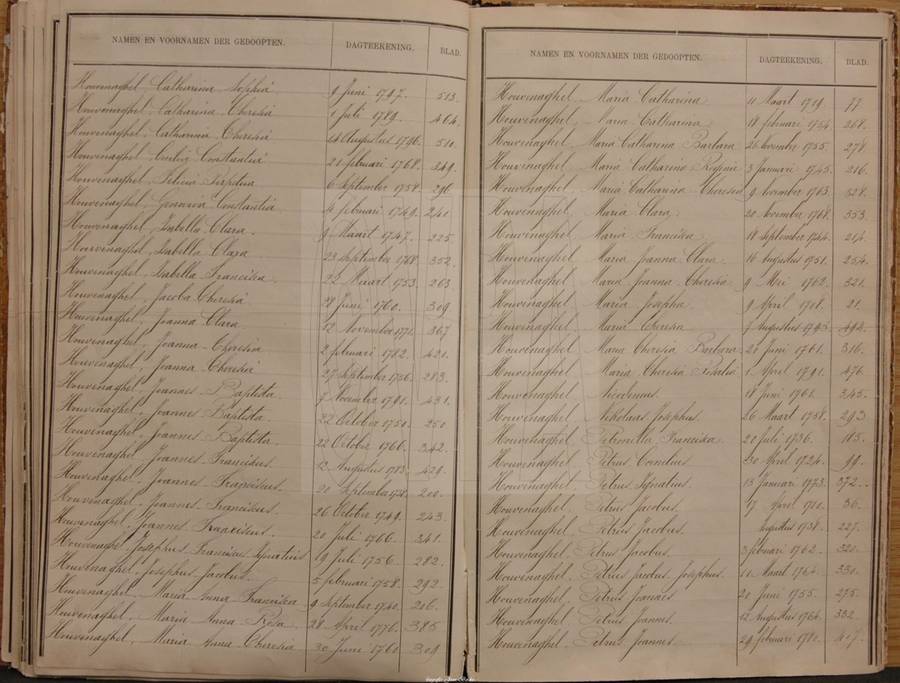 NAMEN EN VOORNAMEN DER GEDOOPTEN. DAGTEEKENING. BLAD.
Houvenaghel Catharina Sophia 9 Juni 1797. 513.
Houvenaghel Catharina Theresia 1 Juli 1789. 464.
Houvenaghel. Catharina Theresia 14 Augustus 1796. 510.
Houvenaghel Constantia 21 februari 1768. 349.
Houvenaghel. Felicia Perpetua 6 September 1758. 296
Houvenaghel, Joanna Constantia februari 1749. 240.
Houvenaghel, Isabella Clara. 9 Maart 1747. 225.
Houvenaghel, Isabella Clara 23 September 1768. 352.
Houvenaghel, Isabella Francisca 22 Maart 1753. 263
Houvenaghel, Jacoba Theresia 29 Juni 1760. 309
Houvenaghel, Joanna Clara 12 November 1771. 367
Houvenaghel, Joanna Theresia 2 februari 1782. 421.
Houvenaghel, Joanna Theresia 27 September 1756. 283.
Houvenaghel, Joannes Baptista 7 November 431.
Houvenaghel, Joannes Baptista 22 October 1750. 250
Houvenaghel, Joannes Baptista 22 October 1766. 342.
Houvenaghel, Joannes Franciscus 12 Augustus 1783. 429.
Houvenaghel, Joannes Franciscus. 20 September 200.
Houvenaghel, Joannes Franciscus 26 October 1749. 243.
Houvenaghel, Joannes Franciscus. 20 Juli 1766. 341.
Houvenaghel, Josephus Franciscus Ignatius 19 Juli 1756. 282.
Houvenaghel, Josephus Jacobus. 5 februari 1758. 292.
Houvenaghel, Maria Anna Francisca 9 September 1740. 216.
Houvenaghel, Maria Anna Rosa 28 April 1776. 385
Houvenaghel, Maria Anna Theresia 30 Juni 1760 309
NAMEN EN VOORNAMEN DER GEDOOPTEN. DAGTEEKENING. BLAD.
Houvenaghel, Maria Catharina 11 Maart 1719. 77.
Houvenaghel, Maria Catharina 18 februari 1754. 268.
Houvenaghel, Maria Catharina Barbara 26 November 1755. 278.
Houvenaghel, Maria Catharina Regina 3 Januari 1745. 216.
Houvenaghel, Maria Catharina Theresia 9 November 1763. 328.
Houvenaghel, Maria Clara 20 November 1768. 353
Houvenaghel, Maria Francisca 18 September 1744. 214
Houvenaghel, Maria Joanna Clara. 16 Augustus 1751. 254.
Houvenaghel, Maria Joanna Theresia 9 Mei 1762. 321.
Houvenaghel, Maria Josepha 9 April 21.
Houvenaghel, Maria Theresia Augustus 1793. 492.
Houvenaghel, Maria Theresia Barbara 21 Juni 1761. 316.
Houvenaghel, Maria Theresia 1 April 1791. 476.
Houvenaghel, Nicodemus 18 Juni 345.
Houvenaghel, Nikolaus Josephus. 26 Maart 1758. 293
Houvenaghel, Petronella Francisca 20 Juli 1736. 183.
Houvenaghel, Petrus Cornelius 30 April 1724. 99.
Houvenaghel, Petrus Ignatius 13 Januari 1773. 372.
Houvenaghel, Petrus Jacobus 17 April 1710. 36.
Houvenaghel, Petrus Jacobus Augustus 227.
Houvenaghel, Petrus Jacobus februari 1762. 320.
Houvenaghel, Petrus Jacobus Josephus 11 Maart 1764. 330.
Houvenaghel, Petrus Joannes 20 Juni 1755. 275.
Houvenaghel, Petrus Joannes 12 Augustus 1764. 332.
Houvenaghel, Petrus Joannes 29 februari 407.